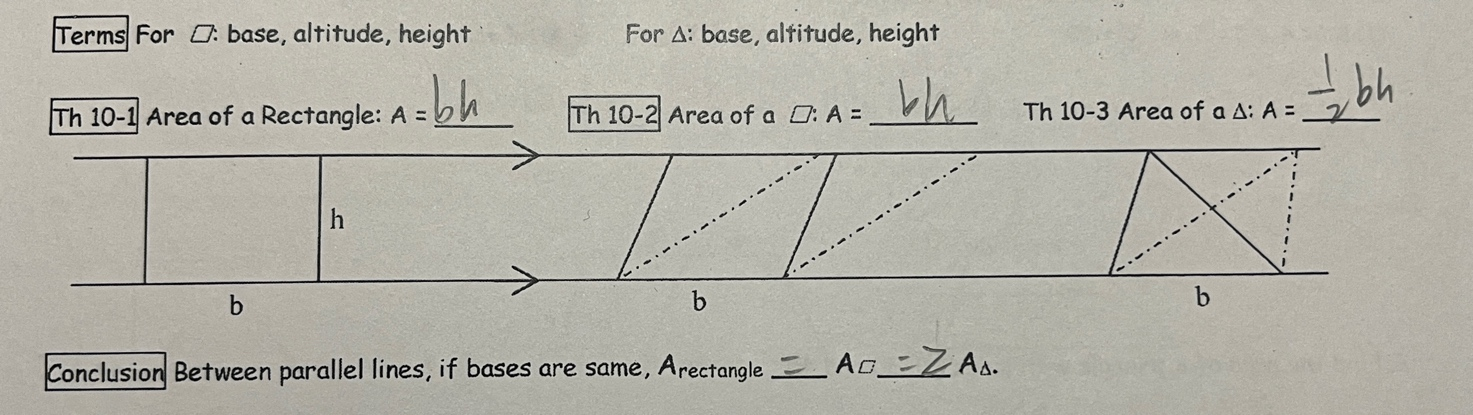 Terms For ▱: base, altitude, height For Δ: base, altitude, height
Th 10-1 Area of a Rectangle: A = bh Th 10-2 Area of a ▱: A = bh Th 10-3 Area of a Δ: A = ½bh
h
b b b
Conclusion Between parallel lines, if bases are same, Arectangle = A▱ = 2 AΔ.